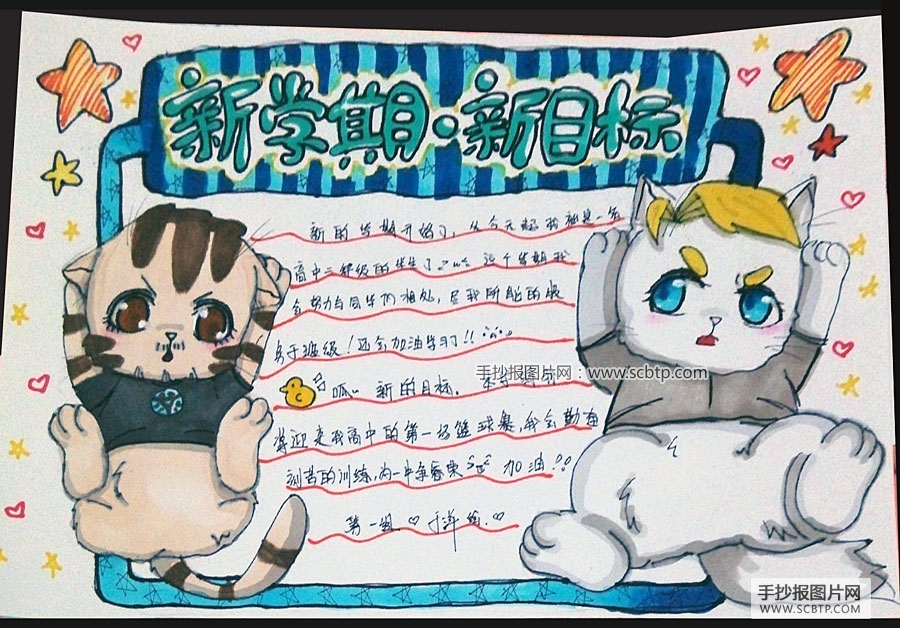 新学期·新目标
新的学期开始了,从今天起我就是一名
高中二年级的学生了 这个学期我
会努力与同学们相处,尽我所能的服
务于班级!还会加油学习!!
呱~ 新的目标.
手抄报图片网:www.scbtp.com
迎来我高中的第一场篮球赛,我会勤奋
刻苦的训练,为一中争容荣 加油!!
第一组♡于洋 绘.♡
手抄报图片网
WWW.SCBTP.COM